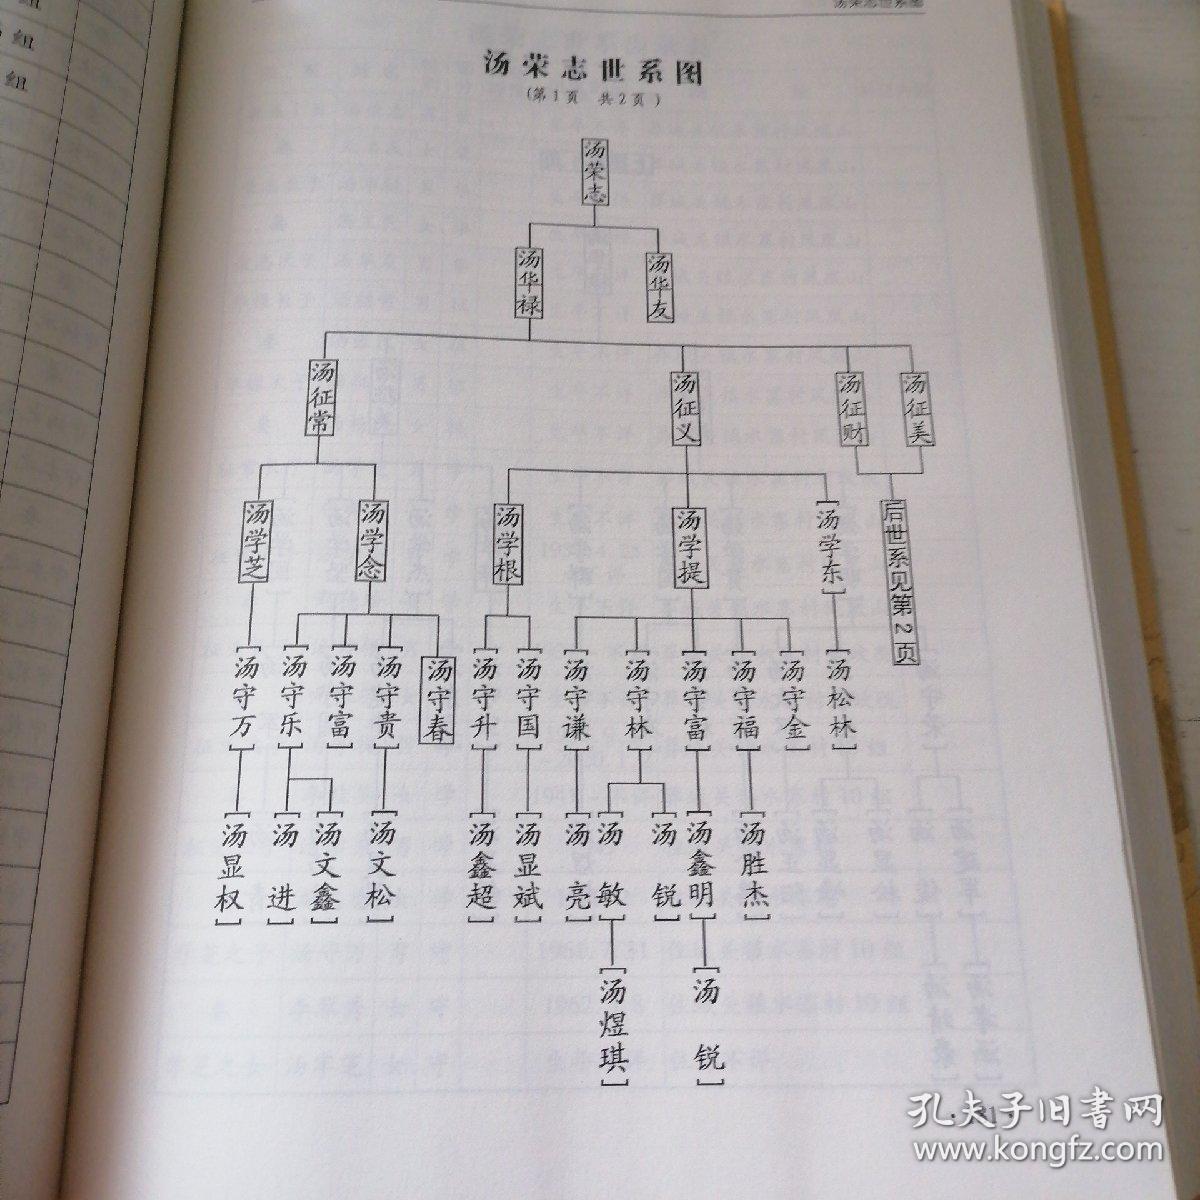 组
组
组
汤荣志世系图
汤荣志世系图
(第1页 共2页)
汤荣志
汤华禄
汤华友
汤征常
汤征义
汤征财
汤征美
汤学芝
汤学念
汤学根
汤学提
[汤学东]
后世系见第2页
[汤守万]
[汤守乐]
[汤守富]
[汤守贵]
汤守春
[汤守升]
[汤守国]
[汤守谦]
[汤守林]
[汤守富]
[汤守福]
[汤守金]
[汤松林]
[汤显权]
[汤 进]
[汤文鑫]
[汤文松]
[汤鑫超]
[汤显斌]
[汤 亮]
[汤 敏]
[汤 锐]
[汤鑫明]
[汤胜杰]
[汤煜琪]
[汤 锐]
孔夫子旧书网
www.kongfz.com